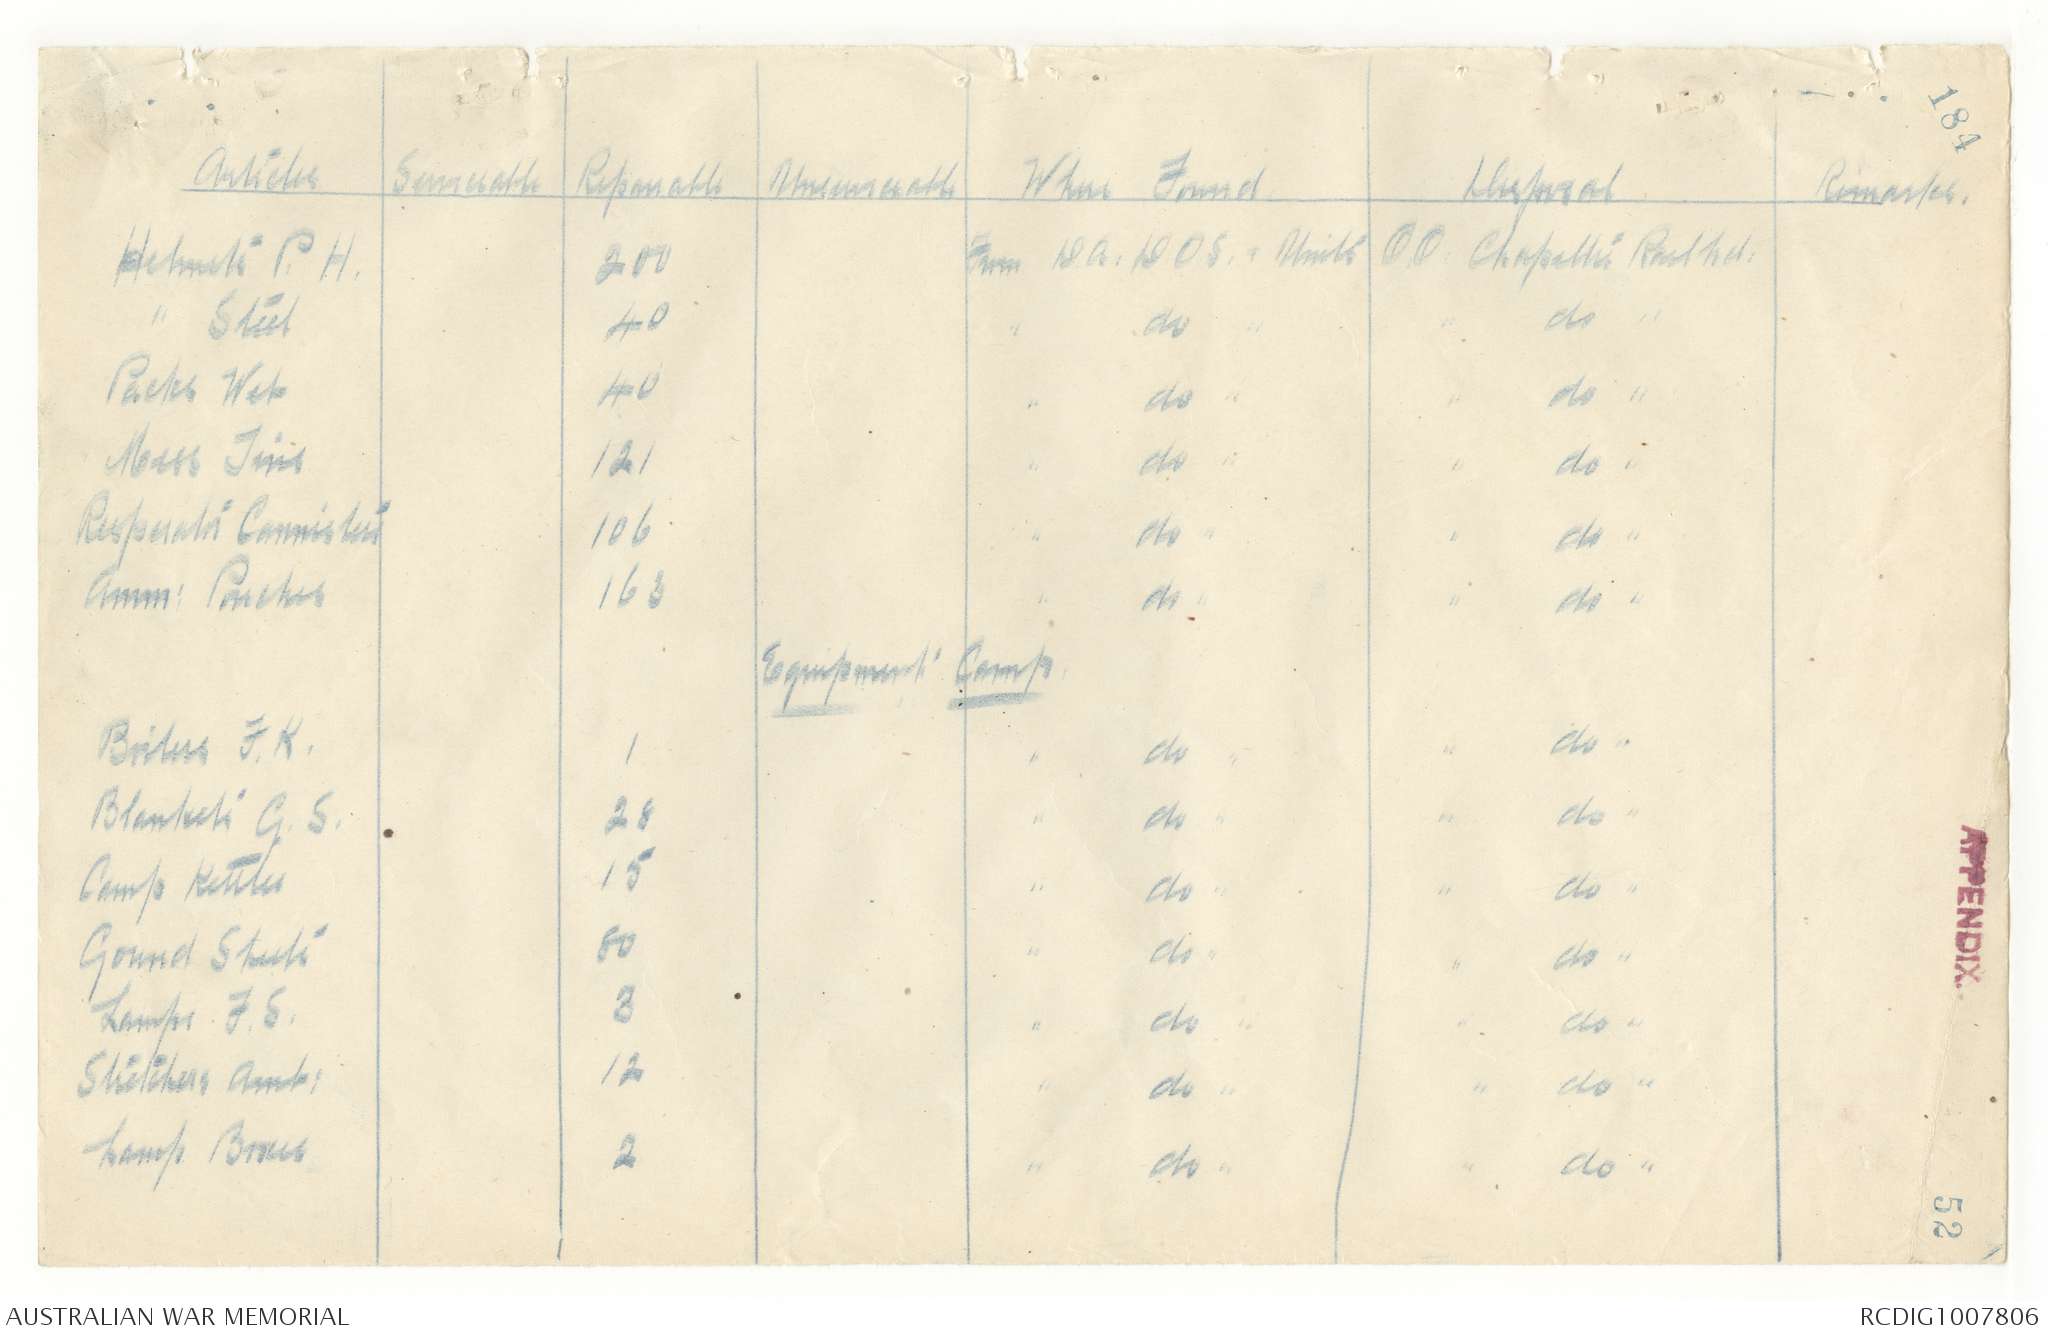 184
Articles Serviceable Reparable Unserviceable Where Found Disposal Remarks.
Helmets P. H. 200 From D.A.D.O.S. + Units O.O. Chapelle Railhd.
" Steel 40 " do " " do "
Packs Web 40 " do " " do "
Mess Tins 121 " do " " do "
Respirator Cannisters 106 " do " " do "
Amm: Pouches 163 " do " " do "
Equipment Camp.
Boilers F.K. 1 " do " " do "
Blankets G.S. 28 " do " " do "
Camp Kettles 15 " do " " do "
Gound Sheets 80 " do " " do "
Lamps F.S. 3 " do " " do "
Stretchers Amb: 12 " do " " do "
Lamp Boxes 2 " do " " do "
APPENDIX.
52
AUSTRALIAN WAR MEMORIAL
RCDIG1007806